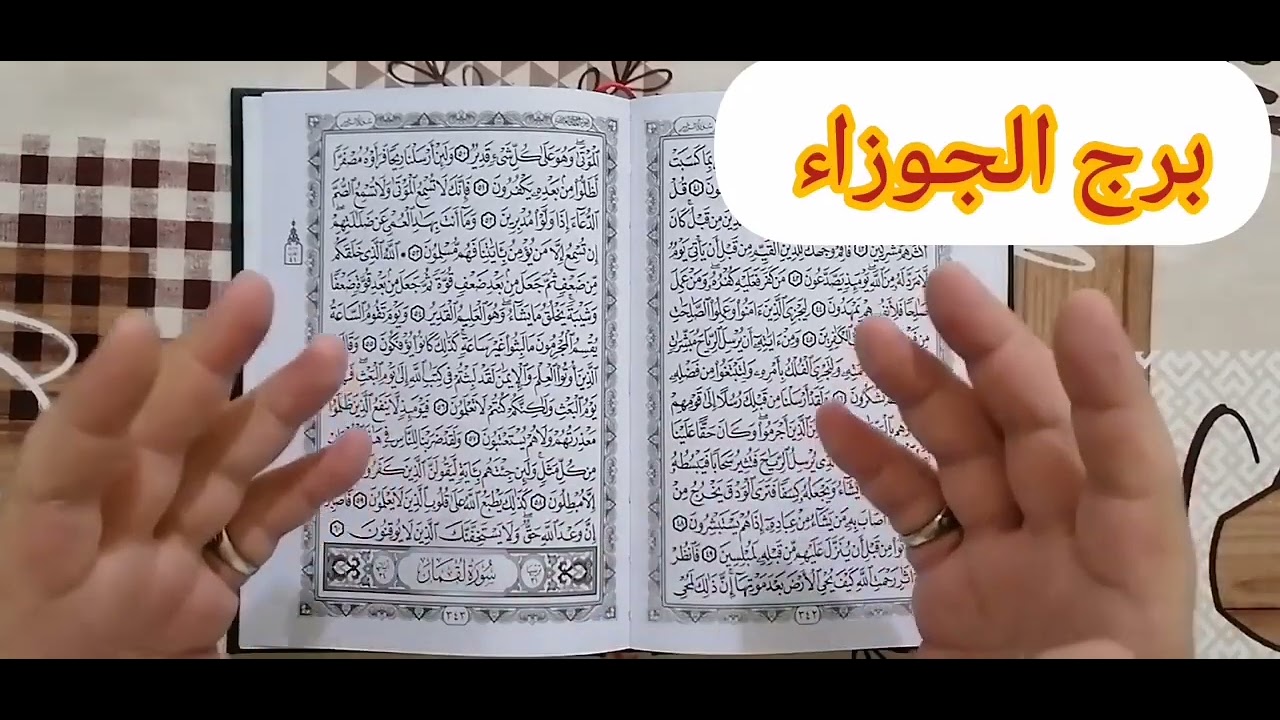 برج الجوزاء
بِمَا كَسَبَتْ
قُلْ
مِن قَبْلُ كَانَ
أَكْثَرُهُم مُّشْرِكِينَ ٤٢ فَأَقِمْ وَجْهَكَ لِلدِّينِ الْقَيِّمِ مِن قَبْلِ أَن يَأْتِيَ يَوْمٌ
لَّا مَرَدَّ لَهُ مِنَ اللَّهِ يَوْمَئِذٍ يَصَّدَّعُونَ ٤٣ مَن كَفَرَ فَعَلَيْهِ كُفْرُهُ وَمَنْ عَمِلَ
صَالِحًا يَمْهَدُونَ ٤٤ لِيَجْزِيَ الَّذِينَ ءَامَنُوا وَعَمِلُوا الصَّالِحَاتِ
مِن الْكَافِرِينَ ٤٥ وَمِنْ ءَايَاتِهِ أَن يُرْسِلَ الرِّيَاحَ مُبَشِّرَاتٍ
وَلِتَجْرِيَ الْفُلْكُ بِأَمْرِهِ وَلِتَبْتَغُوا مِن فَضْلِهِ
تَشْكُرُونَ ٤٦ وَلَقَدْ أَرْسَلْنَا مِن قَبْلِكَ رُسُلًا إِلَى قَوْمِهِمْ
مِنَ الَّذِينَ أَجْرَمُوا وَكَانَ حَقًّا عَلَيْنَا
الَّذِي يُرْسِلُ الرِّيَاحَ فَتُثِيرُ سَحَابًا فَيَبْسُطُهُ
يَشَاءُ وَيَجْعَلُهُ كِسَفًا فَتَرَى الْوَدْقَ يَخْرُجُ مِنْ
أَصَابَ بِهِ مَن يَشَاءُ مِنْ عِبَادِهِ إِذَا هُمْ يَسْتَبْشِرُونَ ٤٨
مِن قَبْلِ أَن يُنَزَّلَ عَلَيْهِم مِّن قَبْلِهِ لَمُبْلِسِينَ ٤٩ فَانظُرْ
رَحْمَتِ اللَّهِ كَيْفَ يُحْيِي الْأَرْضَ بَعْدَ مَوْتِهَا إِنَّ ذَلِكَ لَمُحْيِي
٣٤٢
الْمَوْتَى وَهُوَ عَلَى كُلِّ شَيْءٍ قَدِيرٌ ٥٠ وَلَئِنْ أَرْسَلْنَا رِيحًا فَرَأَوْهُ مُصْفَرًّا
لَّظَلُّوا مِن بَعْدِهِ يَكْفُرُونَ ٥١ فَإِنَّكَ لَا تُسْمِعُ الْمَوْتَى وَلَا تُسْمِعُ الصُّمَّ
الدُّعَاءَ إِذَا وَلَّوْا مُدْبِرِينَ ٥٢ وَمَا أَنتَ بِهَادِ الْعُمْيِ عَن ضَلَالَتِهِمْ
إِن تُسْمِعُ إِلَّا مَن يُؤْمِنُ بِآيَاتِنَا فَهُم مُّسْلِمُونَ ٥٣ اللَّهُ الَّذِي خَلَقَكُم
مِّن ضَعْفٍ ثُمَّ جَعَلَ مِن بَعْدِ ضَعْفٍ قُوَّةً ثُمَّ جَعَلَ مِن بَعْدِ قُوَّةٍ ضَعْفًا
وَشَيْبَةً يَخْلُقُ مَا يَشَاءُ وَهُوَ الْعَلِيمُ الْقَدِيرُ ٥٤ وَيَوْمَ تَقُومُ السَّاعَةُ
يُقْسِمُ الْمُجْرِمُونَ مَا لَبِثُوا غَيْرَ سَاعَةٍ كَذَلِكَ كَانُوا يُؤْفَكُونَ ٥٥ وَقَالَ
الَّذِينَ أُوتُوا الْعِلْمَ وَالْإِيمَانَ لَقَدْ لَبِثْتُمْ فِي كِتَابِ اللَّهِ إِلَى يَوْمِ الْبَعْثِ فَهَذَا
يَوْمُ الْبَعْثِ وَلَكِنَّكُمْ كُنتُمْ لَا تَعْلَمُونَ ٥٦ فَيَوْمَئِذٍ لَّا يَنفَعُ الَّذِينَ ظَلَمُوا
مَعْذِرَتُهُمْ وَلَا هُمْ يُسْتَعْتَبُونَ ٥٧ وَلَقَدْ ضَرَبْنَا لِلنَّاسِ فِي هَذَا
مِن كُلِّ مَثَلٍ وَلَئِن جِئْتَهُم بِآيَةٍ لَّيَقُولَنَّ الَّذِينَ كَفَرُوا
إِلَّا مُبْطِلُونَ ٥٨ كَذَلِكَ يَطْبَعُ اللَّهُ عَلَى قُلُوبِ الَّذِينَ لَا يَعْلَمُونَ ٥٩ فَاصْبِرْ
إِنَّ وَعْدَ اللَّهِ حَقٌّ وَلَا يَسْتَخِفَّنَّكَ الَّذِينَ لَا يُوقِنُونَ ٦٠
سُورَةُ لُقْمَانَ
٣٤٣